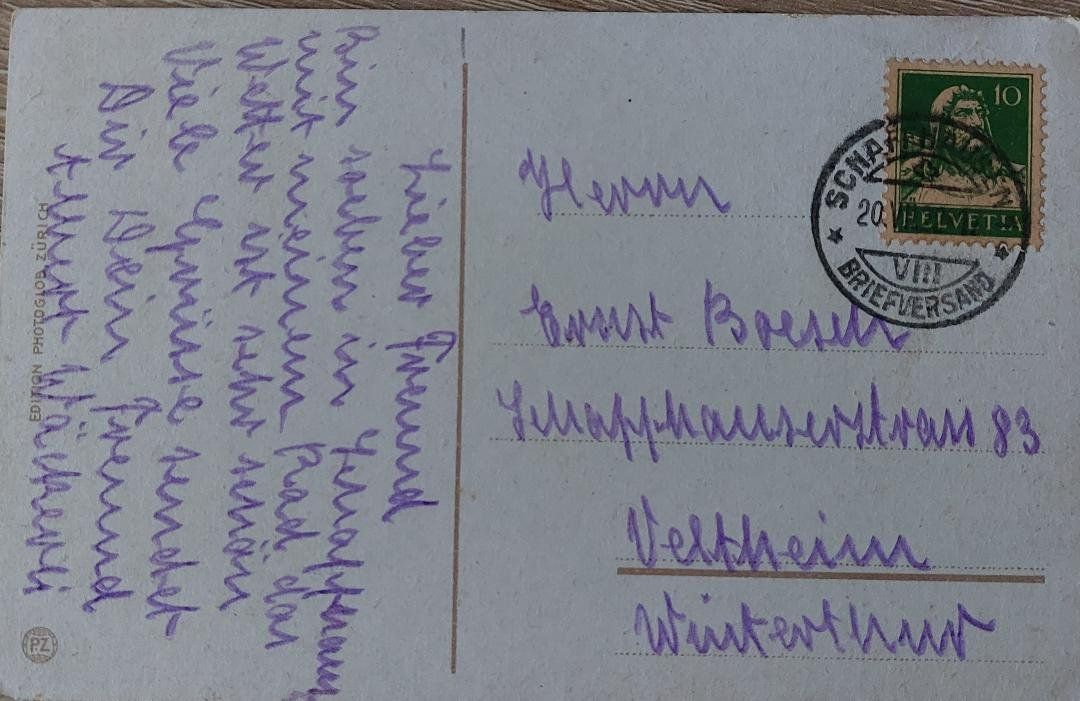 Lieber Freund
Bin soeben in Schaffhaus
mit meinem Rad das
Wetter ist sehr schön
Viele Grüsse sendet
Dir Dein Freund
Albert
EDITION PHOTOGLOB ZÜRICH
PZ
Herrn
Ernst Boesch
Schaffhauserstrass 83
Veltheim
Winterthur
10
HELVETIA
SCHAFFHAUSEN
20.V
VIII
BRIEFVERSAND